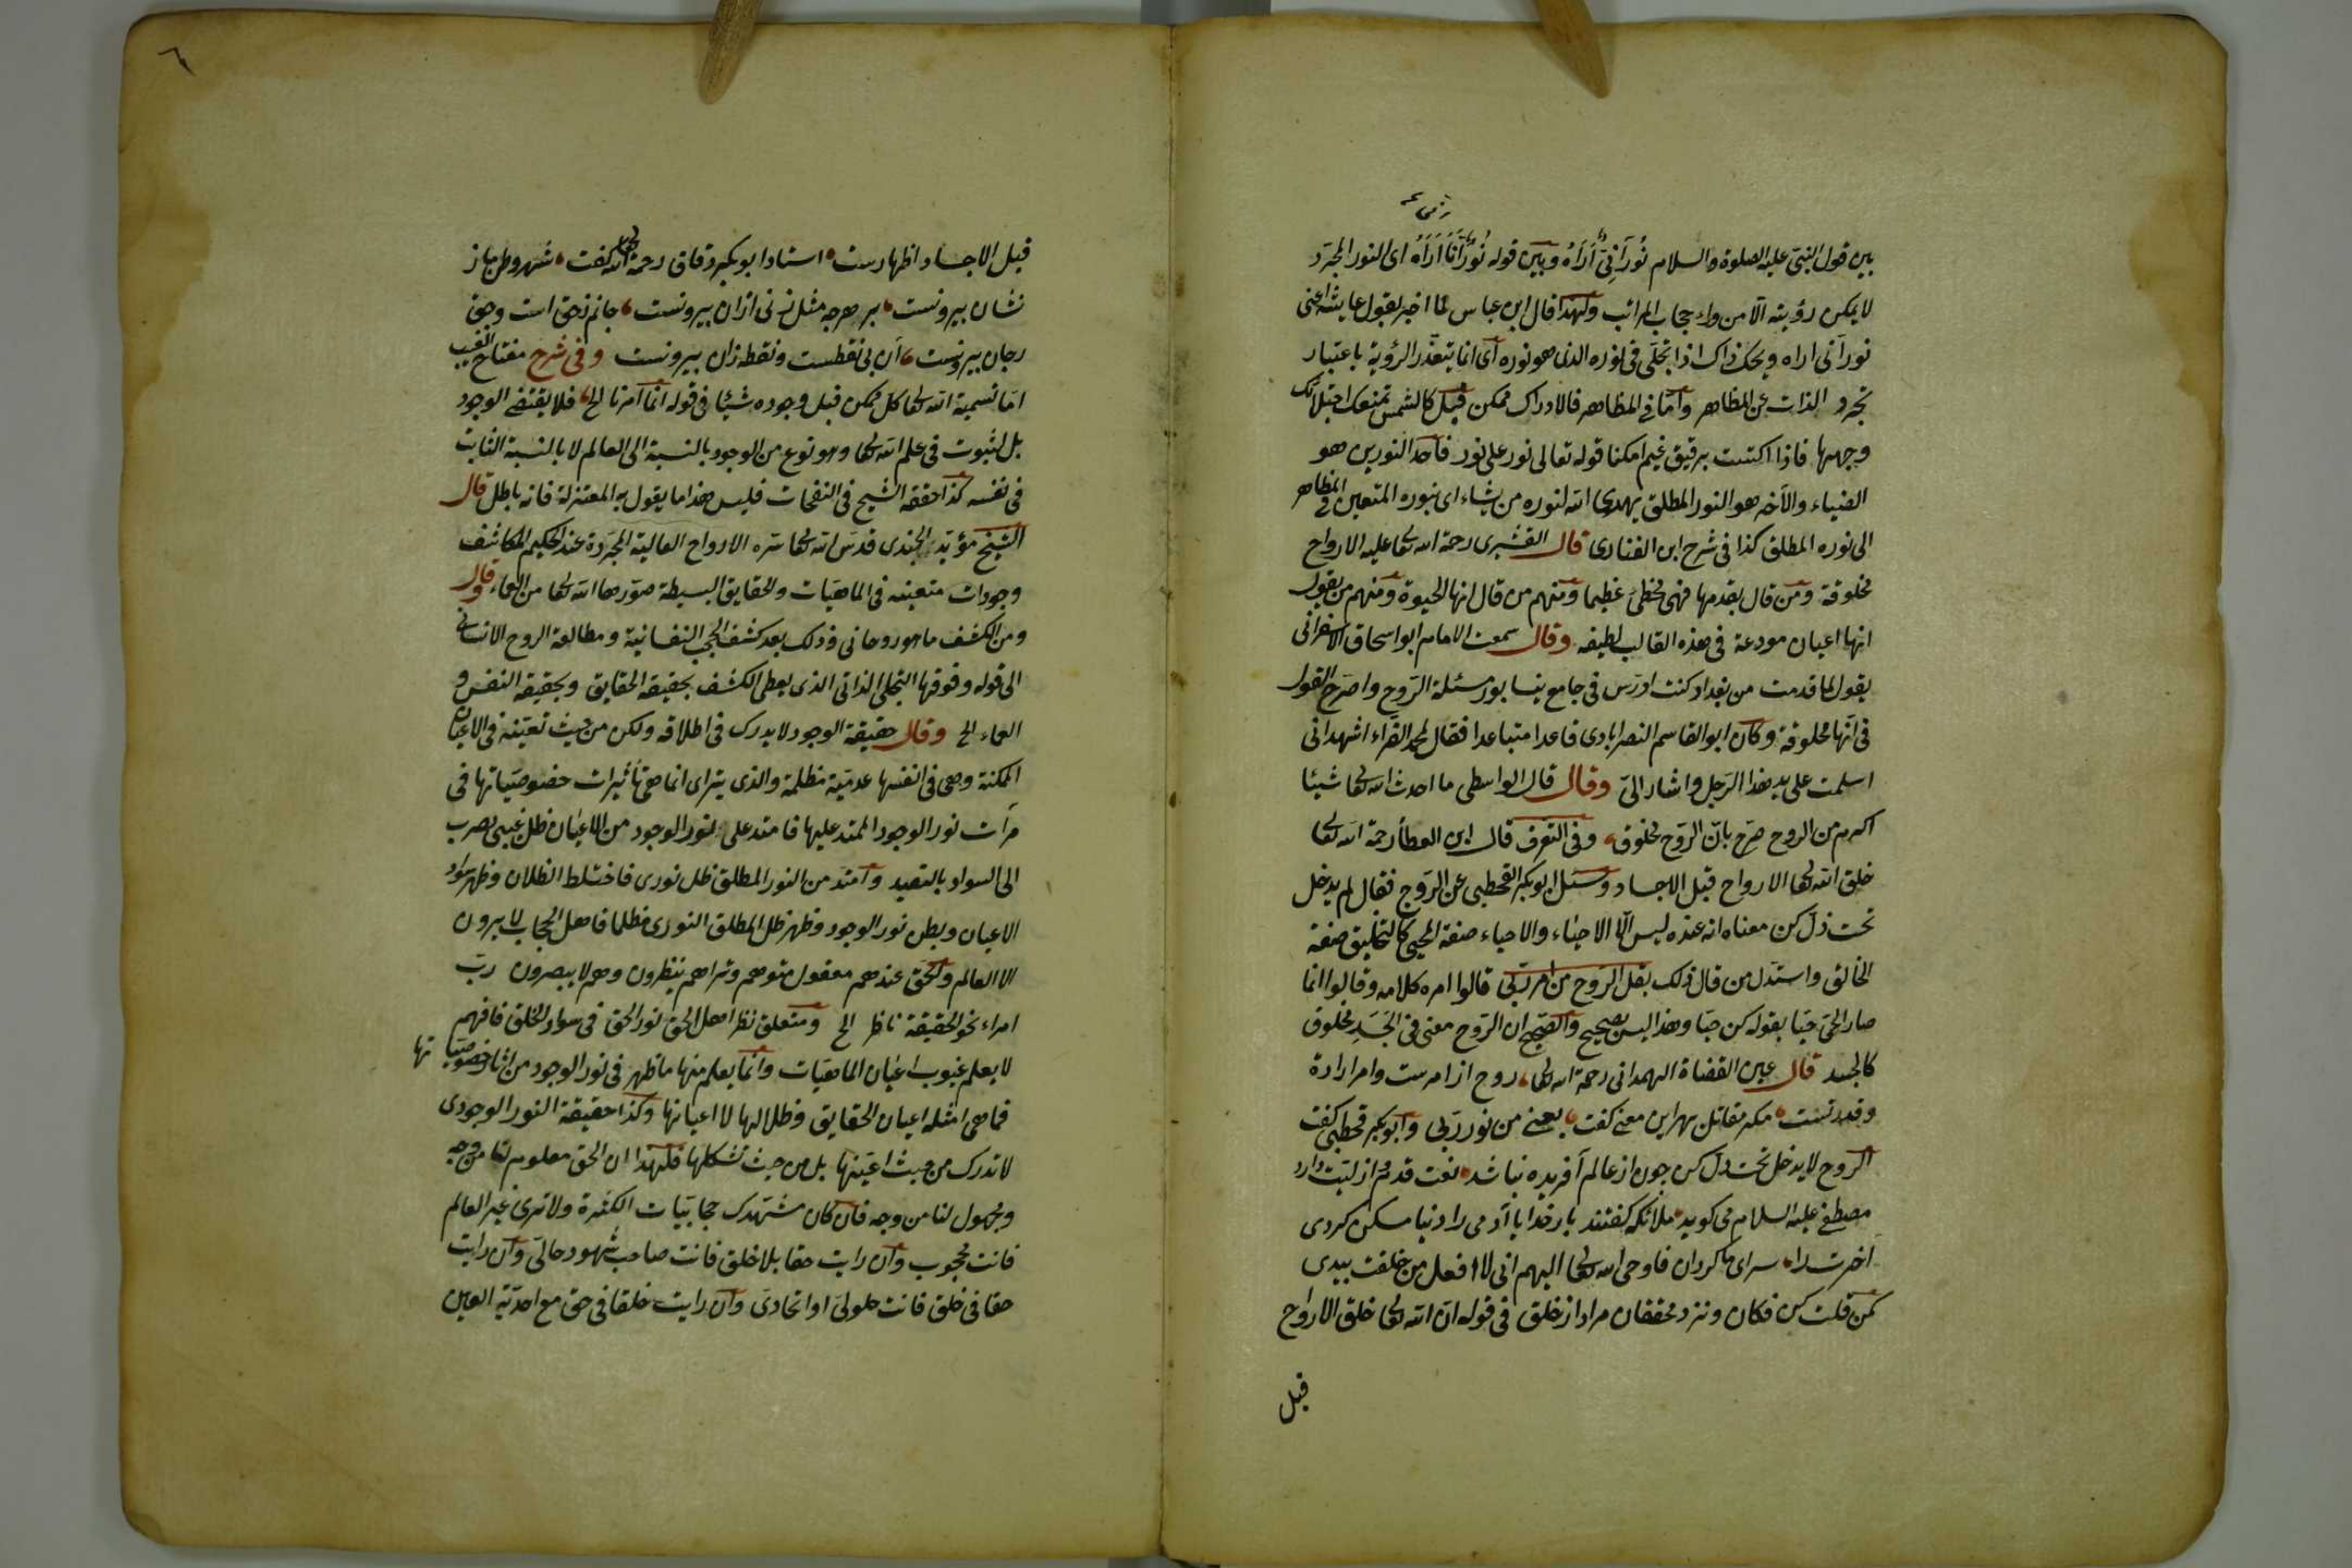 بين قول النبى عليه الصلوة والسلام نُورٌ أَنّى أَرَاهُ وبين قوله نُورًانيًّا أَرَاهُ اى النور المجرّد
لا يمكن رؤيته الّا من وراء حجاب المراتب ولهذا قال ابن عباس لما اخبر بقول عايشة اعنى
نور أنى اراه ويحك ذاك اذا تجلّى فى نوره الذى هو نوره أى انما يتعذّر الرؤية باعتبار
تجرد الذات عن المظاهر وامّا فى المظاهر فالادراك ممكن قيل كالشمس تمنعك اجتلائك
وجهها فاذا اكتست برقيق غيم امكنا قوله تعالى نور على نور فاحد النورين هو
الضياء والآخر هو النور المطلق يهدى الله لنوره من يشاء اى بنوره المتعين فى المظاهر
الى نوره المطلق كذا فى شرح ابن الفنارى قال القشيرى رحمة الله تعالى عليه الارواح
مخلوقة ومن قال بقدمها فهى مخطئ عظيما ومنهم من قال انها الحيوة ومنهم من يقول
انها اعيان مودعة فى هذه القالب لطيفه وقال سمعت الامام ابو اسحاق الاسفرانى
يقول لما قدمت من بغداد كنت ادرس فى جامع نيسابور مسئلة الرّوح واصرّح القول
فى انّها مخلوقة وكان ابو القاسم النصرابادى قاعدا متباعدا فقال لمحمد الفرّاء اشهد انى
اسلمت على يد هذا الرّجل واشار الىّ وقال قال الواسطى ما احدث الله تعالى شيئا
اكرم من الروح صرّح بانّ الرّوح مخلوق وفى التعرف قال ابن العطأ رحمة الله تعالى
خلق الله تعالى الارواح قبل الاجساد وسئل ابو بكر القحطبى عن الرّوح فقال لم يدخل
تحت ذلّ كن معناه انه عنده ليس الّا الاحياء والاحياء صفة المحيى كالتخليق صفة
الخالق واستدل من قال ذلك بقل الرّوح من امر ربّى قالوا امره كلامه وقالوا انما
صار الحىّ حيّا بقوله كن حيّا وهذا ليس بصحيح والصحيح ان الرّوح معنى فى الجَسَدِ مخلوق
كالجسد قال عين القضاة الهمدانى رحمة الله تعالى روح از امرست وامر ارادة
وقدرتست مكر مقاتل بهر اين معنى كفت يعنى من نور ربّى وابو بكر قحطبى كفت
الرّوح لا يدخل تحت ذلّ كن چون از عالم آفريده نباشد نعت قدم و ازليّت دارد
مصطفى عليه السلام مى كويد ملائكه كفتند بار خدايا آدمى را دنيا مسكن كردى
آخرت را سراى ما كردان فاوحى الله تعالى اليهم انى لا افعل من خلقت بيدى
كمن قلت كن فكان ونزد محققان مراد از خلق فى قوله انّ الله تعالى خلق الارواح
قبل
٦
قبل الاجساد اظهارست استاد ابو بكر دقاق رحمة الله تعالى كفت شهر وطن باز
نشان بيرونست بر هرچه مثل زنى از آن بيرونست جانم ز حق است وحق
زجان بيرونست آن بى نقطست ونقطه زان بيرونست وفى شرح مفتاح الغيب
امّا تسمية الله تعالى كل ممكن قبل وجوده شيئا فى قوله انّما امرنا الخ فلا يقتضى الوجود
بل لثبوت فى علم الله تعالى وهو نوع من الوجود بالنسبة الى العالم لا بالنسبة الثابت
فى نفسه كذا حققه الشيخ فى النفحات فليس هذا ما يقول به المعتزلة فانه باطل قال
الشيخ مؤيد الجندى قدس الله تعالى سرّه الارواح العالية المجرّدة عند الحكيم المكاشف
وجودات متعينه فى الماهيّات والحقايق البسيطة صوّرها الله تعالى من العماء وقال
ومن الكشف ما هو روحانى وذلك بعد كشف الحجب النفسانية ومطالعة الروح الانسانى
الى قوله وفوقها التجلى الذاتى الذى يعطى الكشف بحقيقة الحقايق وبحقيقة النفس و
العماء الخ وقال حقيقة الوجود لا يدرك فى اطلاقه ولكن من حيث تعيّنه فى الاعيان
الممكنة وهى فى انفسها عدميّة مظلمة والذى يتراى انما هى تأثيرات خصوصيّاتها فى
مرآت نور الوجود الممتد عليها فامتد على نور الوجود من الاعيان ظلّ غيبى يضرب
الى السواد بالتقييد وامتد من النور المطلق ظل نورى فاختلط الظلان وظهر سواد
الاعيان وبطن نور الوجود وظهر ظل المطلق النورى مظلما فاهل الحجاب لا يرون
الا العالم والحق عندهم معقول متوهم وتراهم ينظرون وهم لا يبصرون ربّ
امراء نحو الحقيقة ناظر الخ ومتعلق نظر اهل الحق نور الحق فى سواد الخلق فافهم
لا يعلم غيوب اعيان الماهيّات وانما يعلم منها ما ظهر فى نور الوجود من آثار خصوصيّاتها
فما هى امثله اعيان الحقايق وظلالها لا اعيانها وكذا حقيقة النور الوجودى
لا تدرك من حيث اعيّنها بل من حيث تشكلها فلهذا ان الحق معلوم لنا من وجه
ومجهول لنا من وجه فان كان مشتهدك حجابيّات الكثرة ولا ترى غير العالم
فانت محجوب وان رايت حقا بلا خلق فانت صاحب شهود حالى وان رايت
حقا فى خلق فانت حلولى او اتحادى وان رايت خلقا فى حق مع احديّة العين